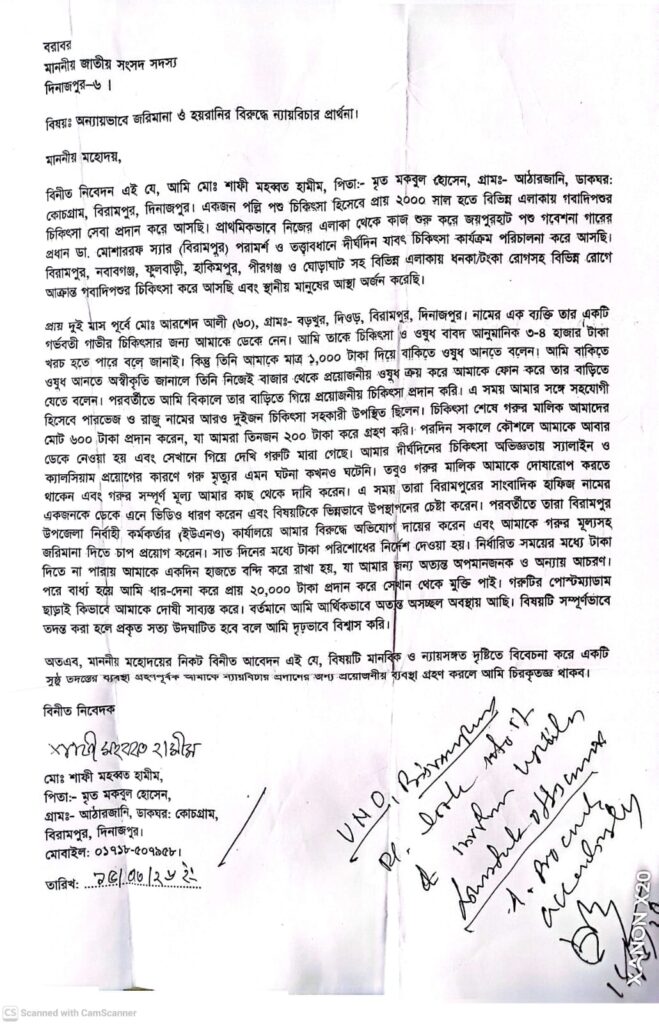 বরাবর
মাননীয় জাতীয় সংসদ সদস্য
দিনাজপুর-৬ ।
বিষয়ঃ অন্যায়ভাবে জরিমানা ও হয়রানির বিরুদ্ধে ন্যায়বিচার প্রার্থনা।
মাননীয় মহোদয়,
বিনীত নিবেদন এই যে, আমি মোঃ শাফী মহব্বত হামীম, পিতা:- মৃত মকবুল হোসেন, গ্রামঃ- আঠারজানি, ডাকঘর:
কোচগ্রাম, বিরামপুর, দিনাজপুর। একজন পল্লি পশু চিকিৎসা হিসেবে প্রায় ২০০০ সাল হতে বিভিন্ন এলাকায় গবাদিপশুর
চিকিৎসা সেবা প্রদান করে আসছি। প্রাথমিকভাবে নিজের এলাকা থেকে কাজ শুরু করে জয়পুরহাট পশু গবেশনা গারের
প্রধান ডা. মোশাররফ স্যার (বিরামপুর) পরামর্শ ও তত্ত্বাবধানে দীর্ঘদিন যাবৎ চিকিৎসা কার্যক্রম পরিচালনা করে আসছি।
বিরামপুর, নবাবগঞ্জ, ফুলবাড়ী, হাকিমপুর, পীরগঞ্জ ও ঘোড়াঘাট সহ বিভিন্ন এলাকায় ধনকা/টংকা রোগসহ বিভিন্ন রোগে
আক্রান্ত গবাদিপশুর চিকিৎসা করে আসছি এবং স্থানীয় মানুষের আস্থা অর্জন করেছি।
প্রায় দুই মাস পূর্বে মোঃ আরশেদ আলী (৬০), গ্রামঃ- বড়খুর, দিওড়, বিরামপুর, দিনাজপুর। নামের এক ব্যক্তি তার একটি
গর্ভবতী গাভীর চিকিৎসার জন্য আমাকে ডেকে নেন। আমি তাকে চিকিৎসা ও ওষুধ বাবদ আনুমানিক ৩-৪ হাজার টাকা
খরচ হতে পারে বলে জানাই। কিন্তু তিনি আমাকে মাত্র ১,০০০ টাকা দিয়ে বাকিতে ওষুধ আনতে বলেন। আমি বাকিতে
ওষুধ আনতে অস্বীকৃতি জানালে তিনি নিজেই বাজার থেকে প্রয়োজনীয় ওষুধ ক্রয় করে আমাকে ফোন করে তার বাড়িতে
যেতে বলেন। পরবর্তীতে আমি বিকালে তার বাড়িতে গিয়ে প্রয়োজনীয় চিকিৎসা প্রদান করি। এ সময় আমার সঙ্গে সহযোগী
হিসেবে পারভেজ ও রাজু নামের আরও দুইজন চিকিৎসা সহকারী উপস্থিত ছিলেন। চিকিৎসা শেষে গরুর মালিক আমাদের
মোট ৬০০ টাকা প্রদান করেন, যা আমরা তিনজন ২০০ টাকা করে গ্রহণ করি। পরদিন সকালে কৌশলে আমাকে আবার
ডেকে নেওয়া হয় এবং সেখানে গিয়ে দেখি গরুটি মারা গেছে। আমার দীর্ঘদিনের চিকিৎসা অভিজ্ঞতায় স্যালাইন ও
ক্যালসিয়াম প্রয়োগের কারণে গরু মৃত্যুর এমন ঘটনা কখনও ঘটেনি। তবুও গরুর মালিক আমাকে দোষারোপ করতে
থাকেন এবং গরুর সম্পূর্ণ মূল্য আমার কাছ থেকে দাবি করেন। এ সময় তারা বিরামপুরের সাংবাদিক হাফিজ নামের
একজনকে ডেকে এনে ভিডিও ধারণ করেন এবং বিষয়টিকে ভিন্নভাবে উপস্থাপনের চেষ্টা করেন। পরবর্তীতে তারা বিরামপুর
উপজেলা নির্বাহী কর্মকর্তার (ইউএনও) কার্যালয়ে আমার বিরুদ্ধে অভিযোগ দায়ের করেন এবং আমাকে গরুর মূল্যসহ
জরিমানা দিতে চাপ প্রয়োগ করেন। সাত দিনের মধ্যে টাকা পরিশোধের নির্দেশ দেওয়া হয়। নির্ধারিত সময়ের মধ্যে টাকা
দিতে না পারায় আমাকে একদিন হাজতে বন্দি করে রাখা হয়, যা আমার জন্য অত্যন্ত অপমানজনক ও অন্যায় আচরণ।
পরে বাধ্য হয়ে আমি ধার-দেনা করে প্রায় ২০,০০০ টাকা প্রদান করে সেখান থেকে মুক্তি পাই। গরুটির পোস্টম্যাডাম
ছাড়াই কিভাবে আমাকে দোষী সাব্যস্ত করে। বর্তমানে আমি আর্থিকভাবে অত্যন্ত অসচ্ছল অবস্থায় আছি। বিষয়টি সম্পূর্ণভাবে
তদন্ত করা হলে প্রকৃত সত্য উদঘাটিত হবে বলে আমি দৃঢ়ভাবে বিশ্বাস করি।
অতএব, মাননীয় মহোদয়ের নিকট বিনীত আবেদন এই যে, বিষয়টি মানবিক ও ন্যায়সঙ্গত দৃষ্টিতে বিবেচনা করে একটি
সুষ্ঠু তদন্তের ব্যবস্থা গ্রহণপূর্বক আমাকে ন্যায়বিচার প্রদানের জন্য প্রয়োজনীয় ব্যবস্থা গ্রহণ করলে আমি চিরকৃতজ্ঞ থাকব।
বিনীত নিবেদক
শাফী মহব্বত হামীম
মোঃ শাফী মহব্বত হামীম,
পিতা:- মৃত মকবুল হোসেন,
গ্রামঃ- আঠারজানি, ডাকঘর: কোচগ্রাম,
বিরামপুর, দিনাজপুর।
মোবাইল: ০১৭১৮-৫০৭৯৫৮।
তারিখ:
UNO, Birampur
Pl. look into it
&
accordingly
XANON X20
CS Scanned with CamScanner